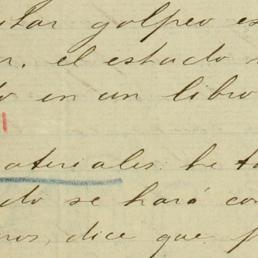 itar golpeo es
r. el estado
o en un libro
ateriales. he to
do se hará co
nos, dice que p